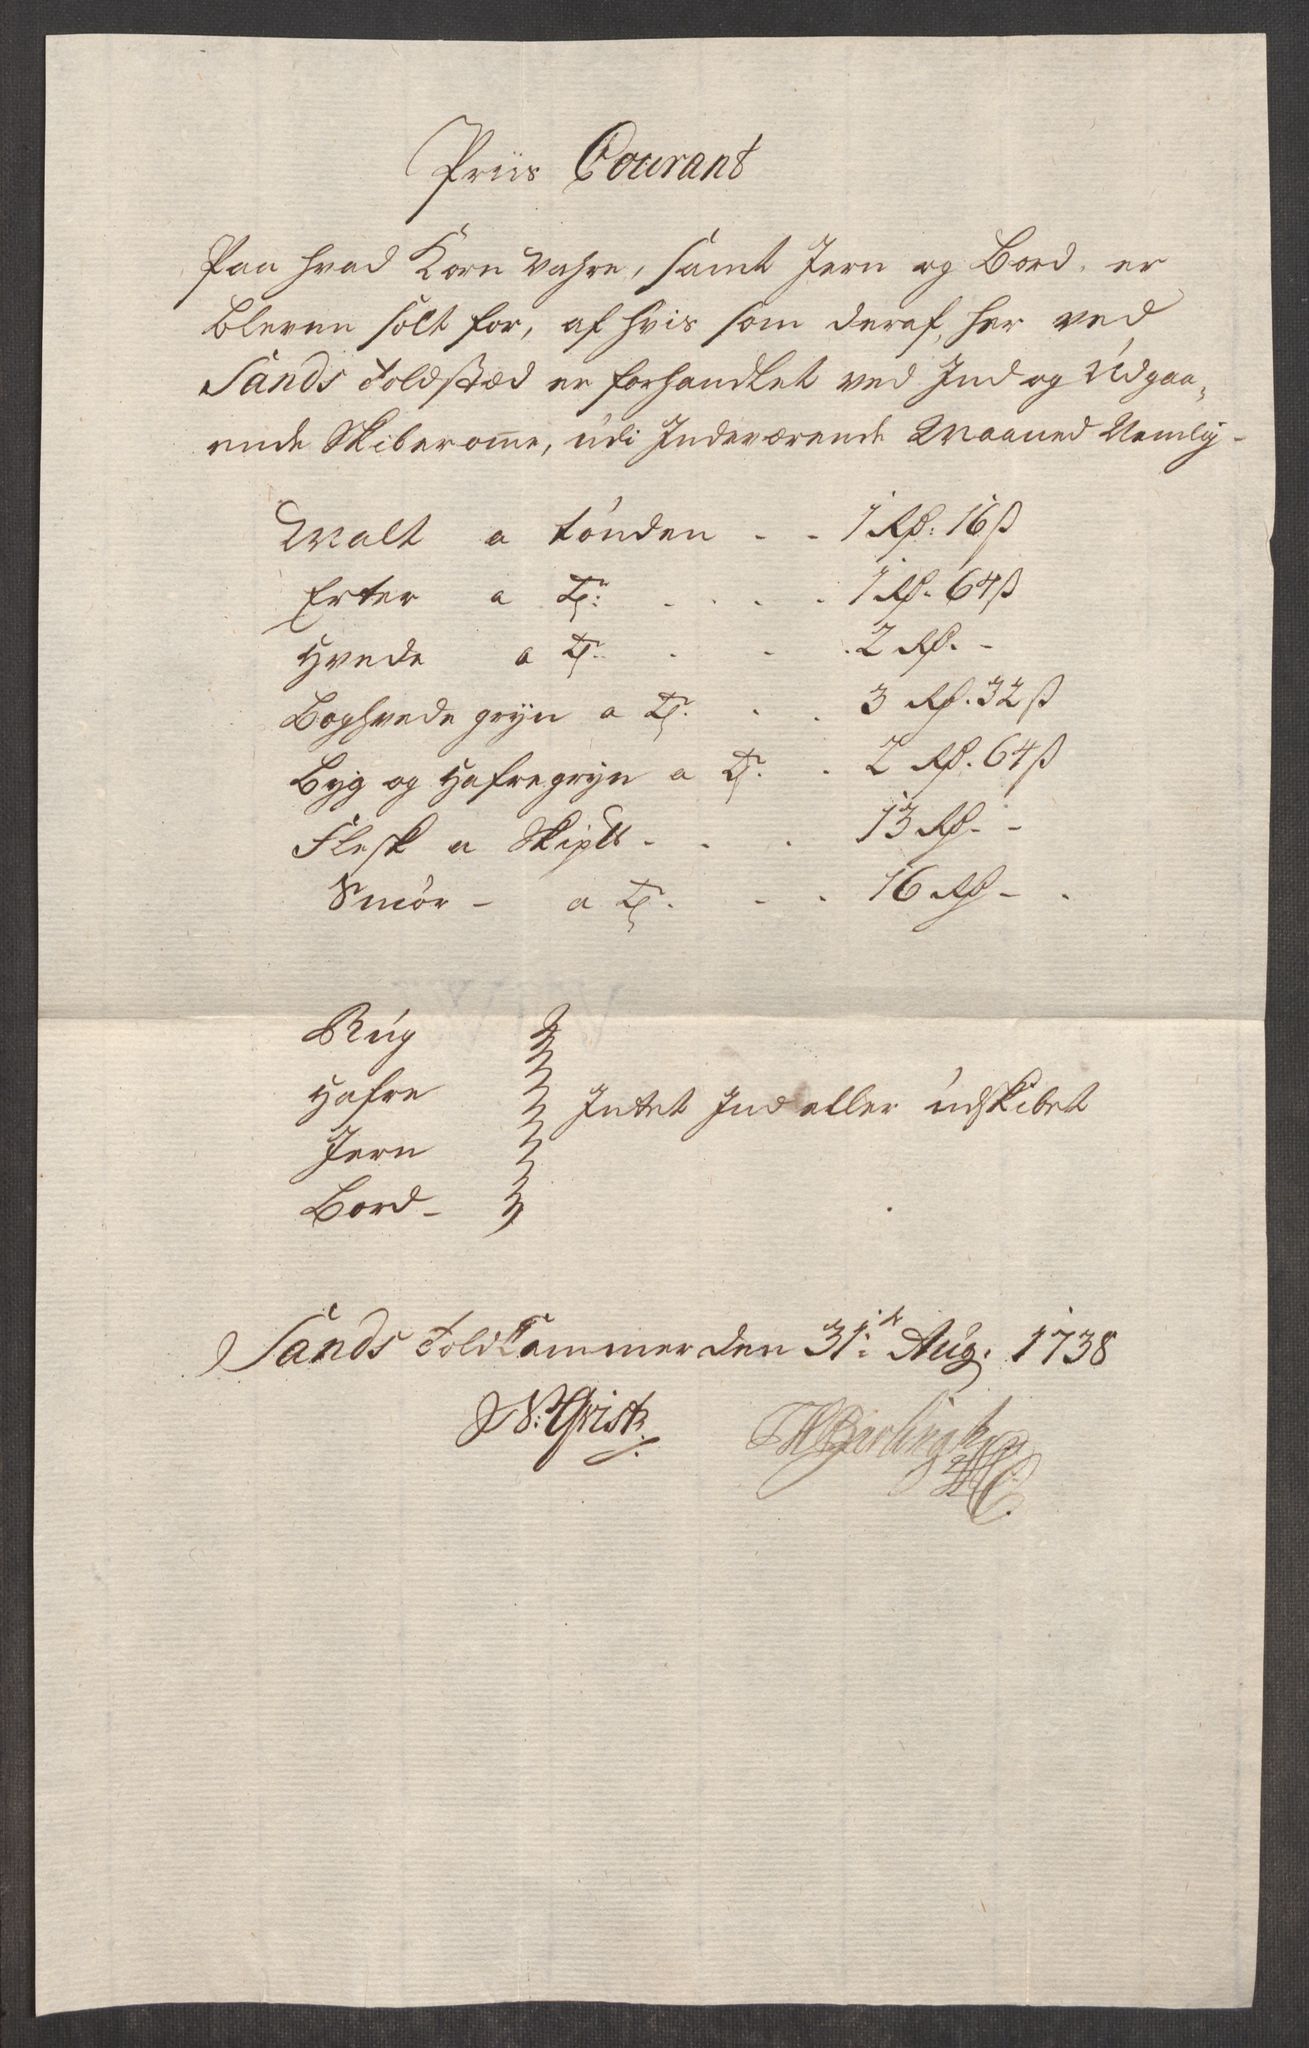 Priis Courant
Paa hvad Korn Vahre, samt Jern og Bord, er
bleven solt for, af hvis som deraf, her ved
Sands Toldstæd er forhandlet ved Ind og Udgaa„
ende Skiberomme, udi Indeværende Maaned Nemlig -
Malt a tønden - - 1 Rd: 16 ß
Erter a Tr: . . . . 1 Rd. 64 ß
Hvede a Tr. . . . 2 Rd. -
Boghvede gryn a Tr. . . 3 Rd. 32 ß
Byg og Hafregryn a Tr. . 2 Rd. 64 ß
Flesk a Skip℔ - . . 13 Rd - -
Smör - a Tr. - . 16 Rd - .
Rug
Hafre
Intet Ind eller udskibet
Jern
Bord -
Sands Told Cammer den 31: Aug. 1738